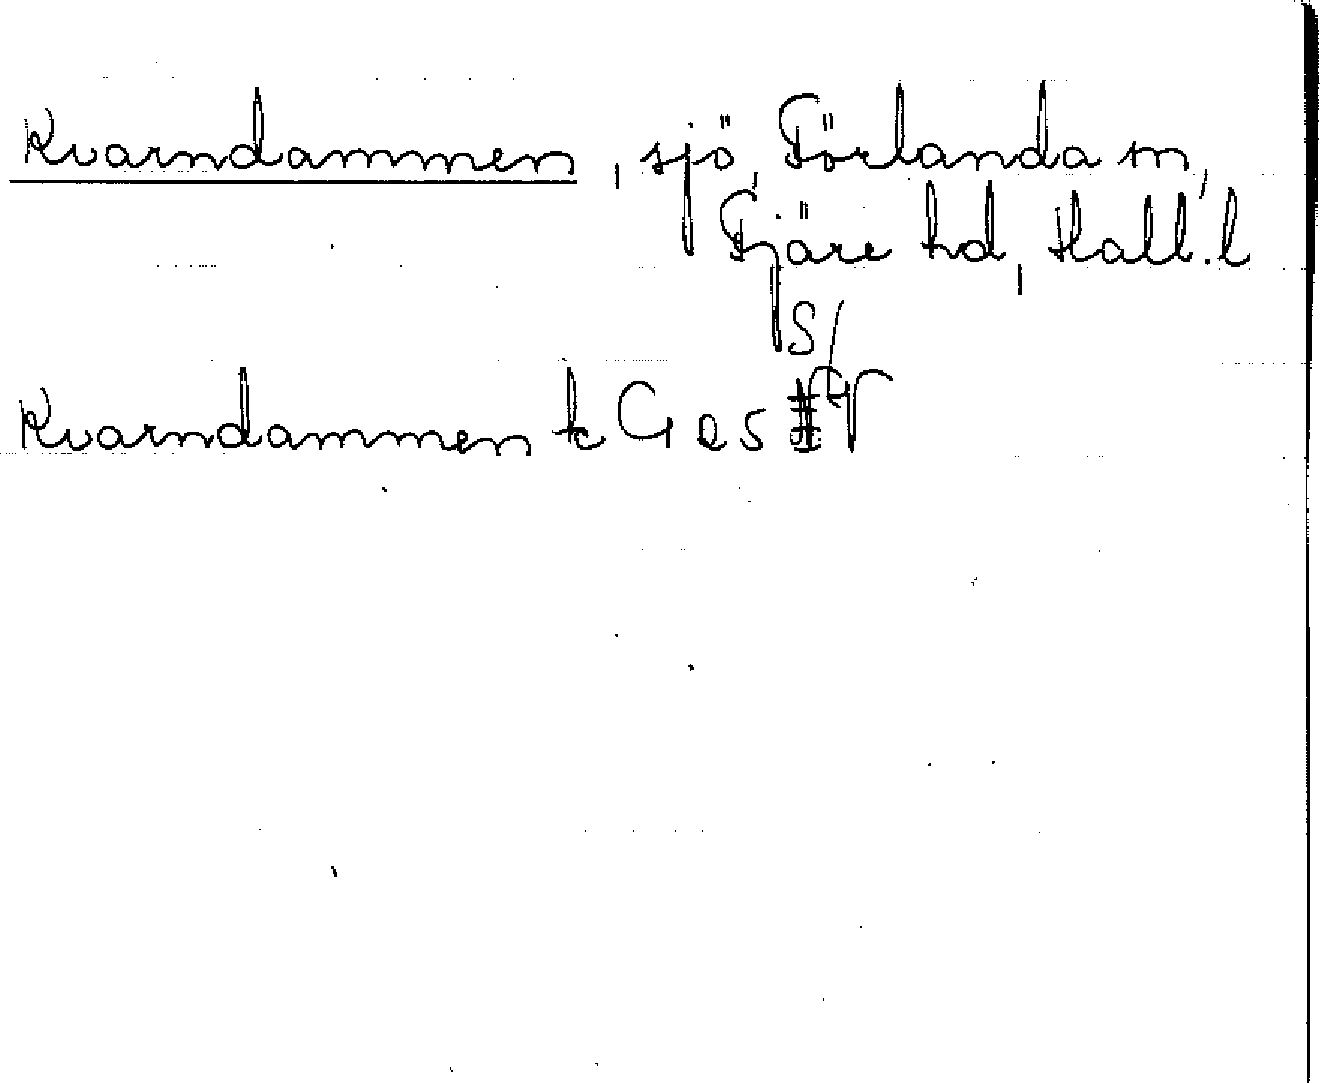 Kvarndammen, sjö, Förlanda sn,
Fjäre hd, Hall. l
S/
Kvarndammen tc G a 5